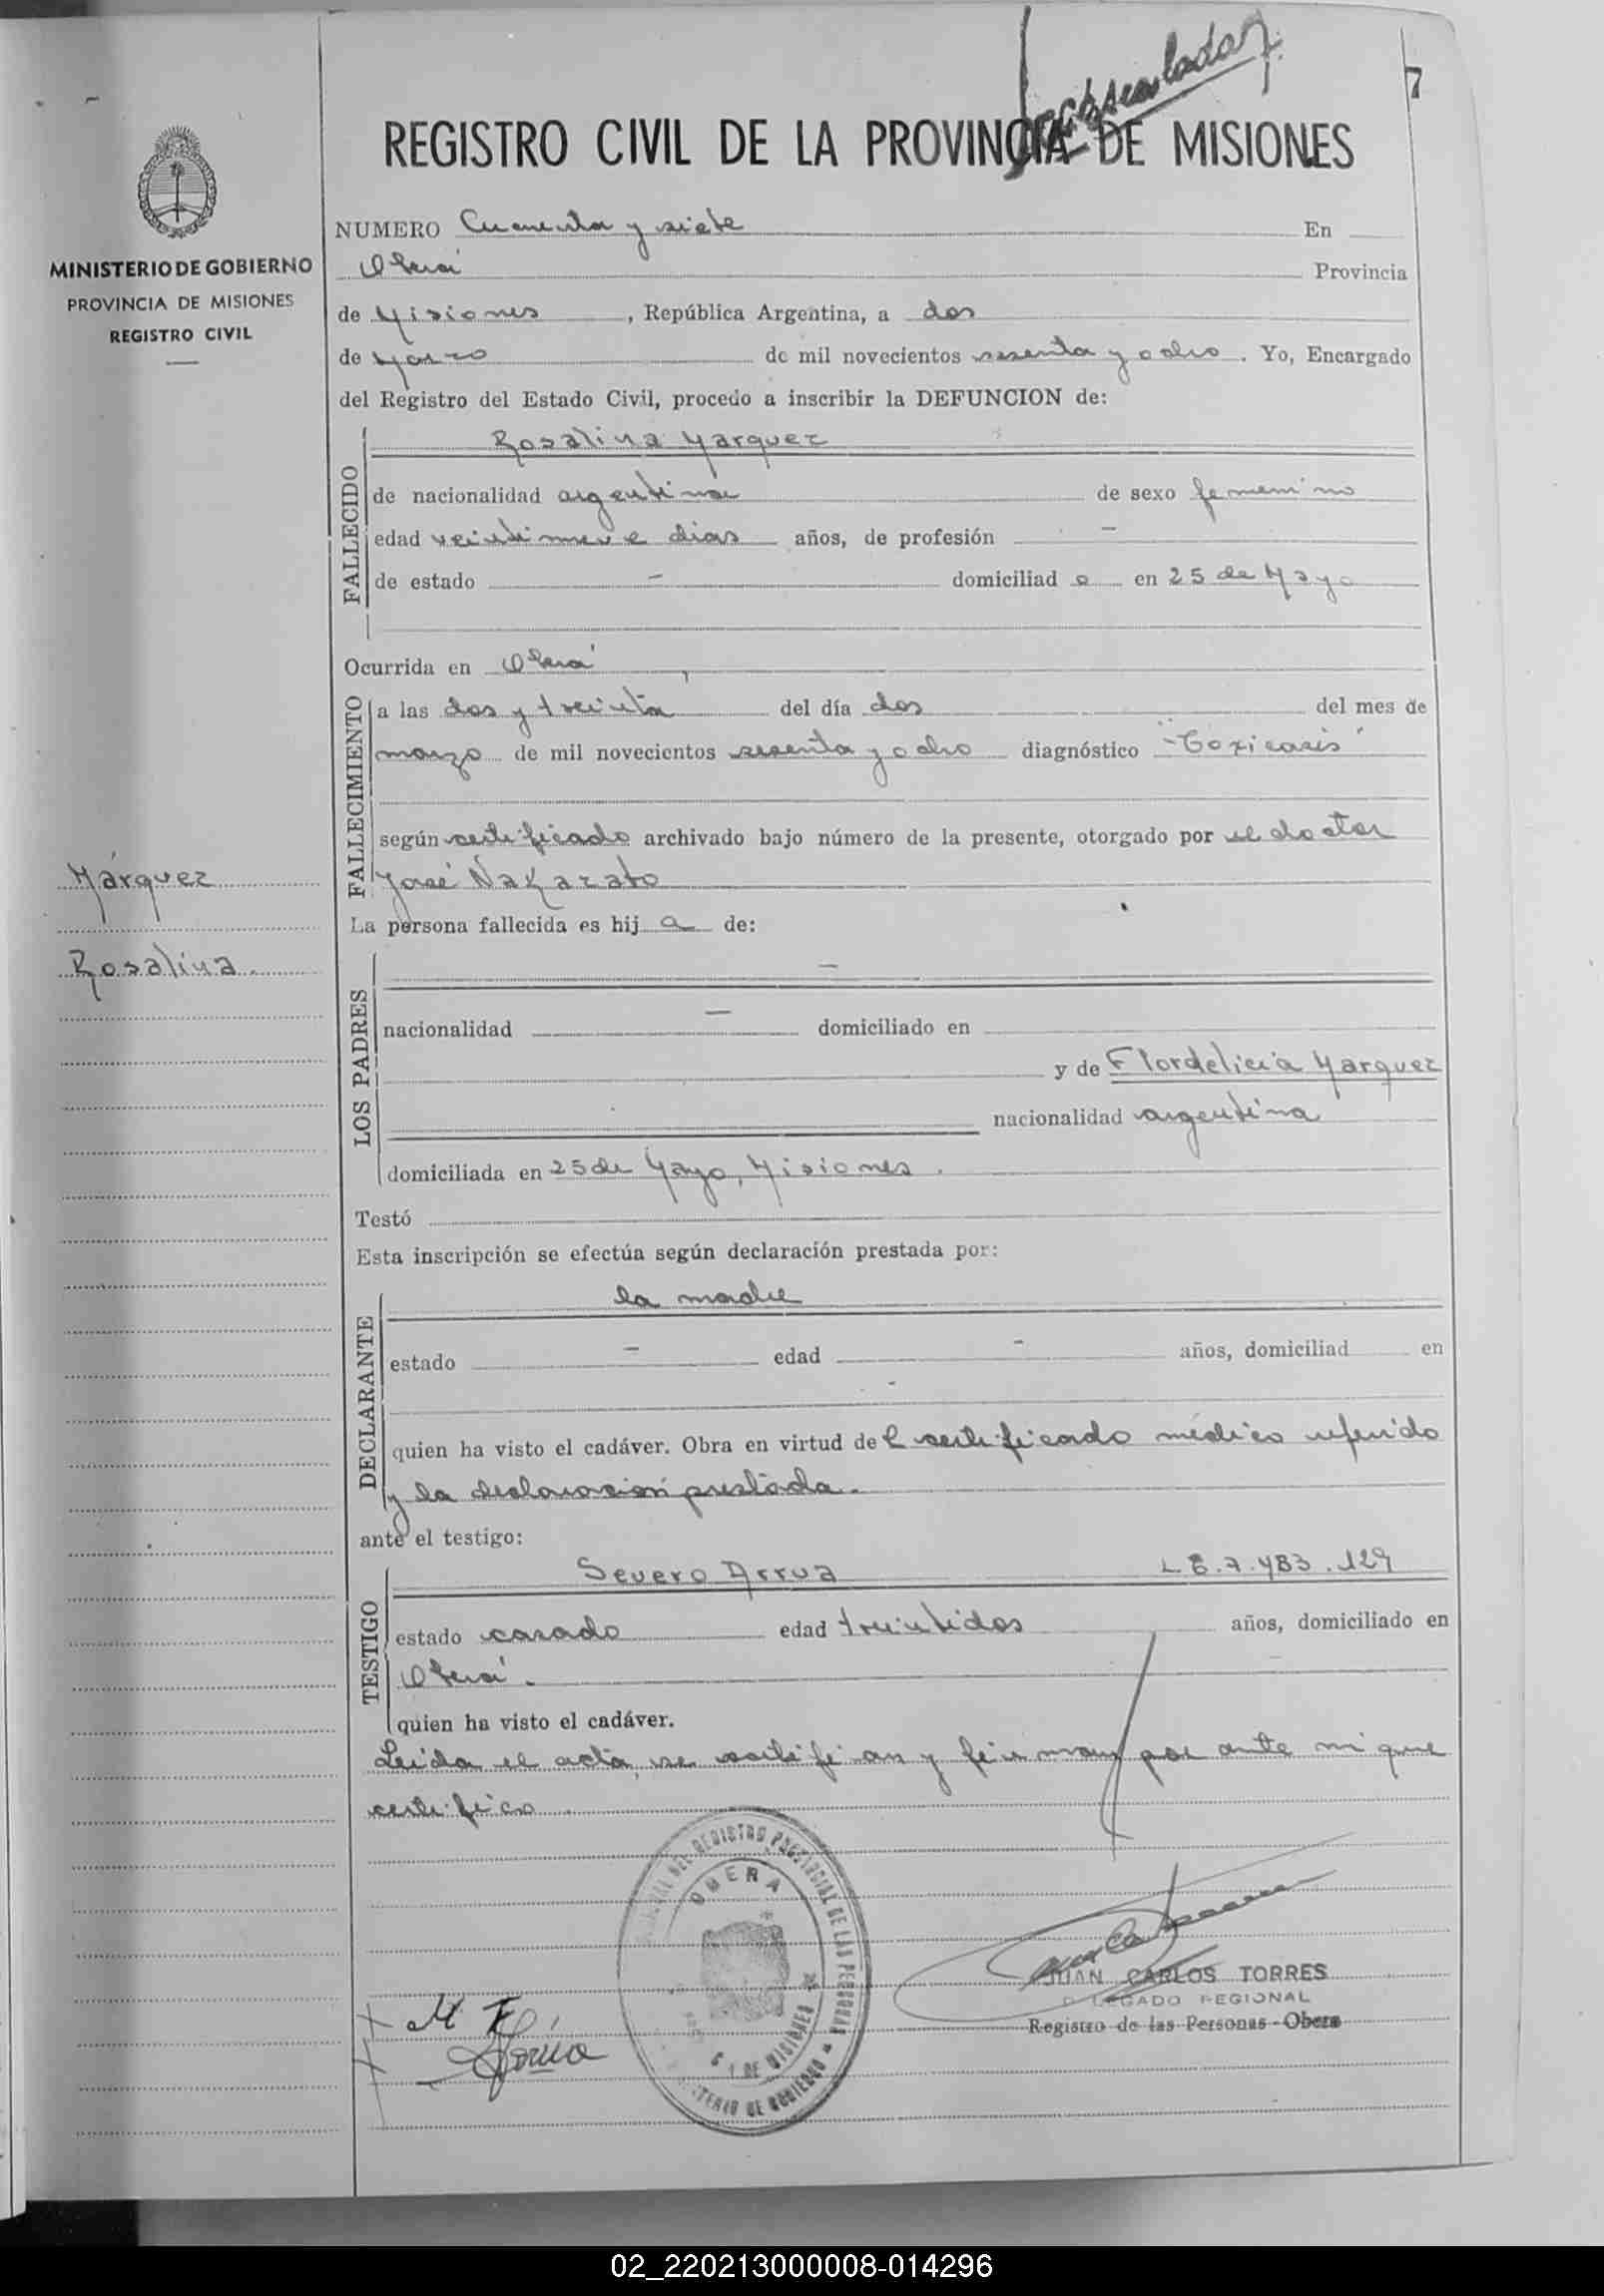 7
REGISTRO CIVIL DE LA PROVINCIA DE MISIONES
MINISTERIO DE GOBIERNO
PROVINCIA DE MISIONES
REGISTRO CIVIL
NUMERO Cuarenta y siete En
Oberá Provincia
de Misiones, República Argentina, a dos
de Marzo de mil novecientos sesenta y ocho. Yo, Encargado
del Registro del Estado Civil, procedo a inscribir la DEFUNCION de:
FALLECIDO
Rosalina Marquez
de nacionalidad argentina de sexo femenino
edad veintinueve dias años, de profesión –
de estado – domiciliad o en 25 de Mayo
Ocurrida en Oberá,
FALLECIMIENTO
a las dos y treinta del día dos del mes de
marzo de mil novecientos sesenta y ocho diagnóstico "Toxicosis"
según certificado archivado bajo número de la presente, otorgado por el doctor
José Nakazato
Márquez
Rosalina.
La persona fallecida es hij a de:
LOS PADRES
–
nacionalidad – domiciliado en
y de Flordelicia Marquez
nacionalidad argentina
domiciliada en 25 de Mayo, Misiones.
Testó
Esta inscripción se efectúa según declaración prestada por:
DECLARANTE
la madre
estado – edad – años, domiciliad en
-
quien ha visto el cadáver. Obra en virtud de l certificado médico referido
y la declaración prestada.
ante el testigo:
TESTIGO
Severo Arrua L.E.7.483.129
estado casado edad treintidos años, domiciliado en
Oberá.
quien ha visto el cadáver.
Leída el acta, se ratifican y firman por ante mi que
certifico.
REGISTRO PROVINCIAL DE LAS PERSONAS
OBERA
MISIONES
MINISTERIO DE GOBIERNO
JUAN CARLOS TORRES
DELEGADO REGIONAL
Registro de las Personas - Obera
02_220213000008-014296